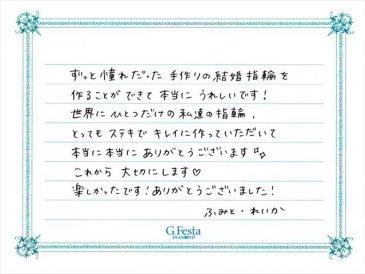 ずっと憧れだった手作りの結婚指輪を
作ることができて本当にうれしいです!
世界にひとつだけの私達の指輪、
とってもステキでキレイに作っていただいて
本当に本当にありがとうございます
これから大切にします♡
楽しかったです!ありがとうございました!
ふみと・れいか
G.Festa
DIAMOND